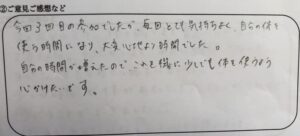 ②ご意見ご感想など
今回3回目の参加でしたが、毎回とても気持ちよく、自分の体を
使う時間になり、大変心地よい時間でした。
自分の時間が増えたので、これを機に少しでも体を使うよう
心がけたいです。